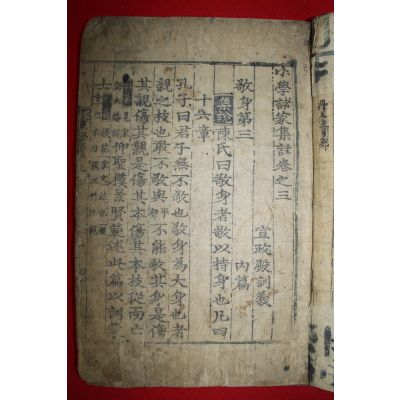 小學諸家集註卷之三
宣政殿訓義
敬身第三　內篇
集說陳氏曰敬身者敬以持身也凡四
十六章
孔子曰君子無不敬也敬身爲大身也者
親之枝也敢不敬與不能敬其身是傷
其親傷其親是傷其本傷其本枝從而亡
仰聖模景賢範述此篇以訓蒙
士